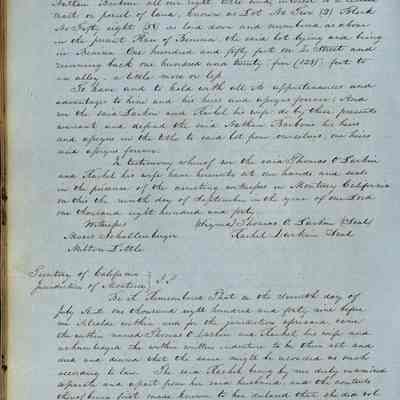 Nathan Barbour all our right title and interest in a certain
tract or parcel of land, known as Lot No Two (2) Block
No Fifty eight 58 as laid down and numbered as above
in the present Plan of Benicia the said lot lying and being
in Benicia One hundred and fifty feet on I. Street and
running back one hundred and twenty five (125) feet to
an alley. a little more or less
To have and to hold with all its appurtenances and
advantages to him and his heirs and assigns forever; And
we the said Larkin and Rachel his wife do by these presents
warrant and defend the said Nathan Barbour his heirs
and assigns in the title to said lot from ourselves, our heirs
and assigns forever
In testimony whereof we the said Thomas O Larkin
and Rachel his wife have hereunto set our hands and seals
in the presence of the assisting witnesses in Monterey California
on this the ninth day of September in the year of our Lord
one thousand eight hundred and forty
Witnesses (Signed) Thomas O. Larkin (Seal)
Moses Schallenberger Rachel Larkin Seal
Milton Little
Territory of California
Jurisdiction of Monterey } S.S.
Be it Remembered That on the eleventh day of
July A.D. one thousand eight hundred and forty nine before
me Alcalde within and for the jurisdiction aforesaid, came
the within named Thomas O Larkin and Rachel his wife and
acknowledged the within written indenture to be their act and
deed and desired that the same might be recorded as such
according to law. The said Rachel being by me duly examined
separate and apart from her said husband, and the contents
thereof being first made known to her declared that she did not